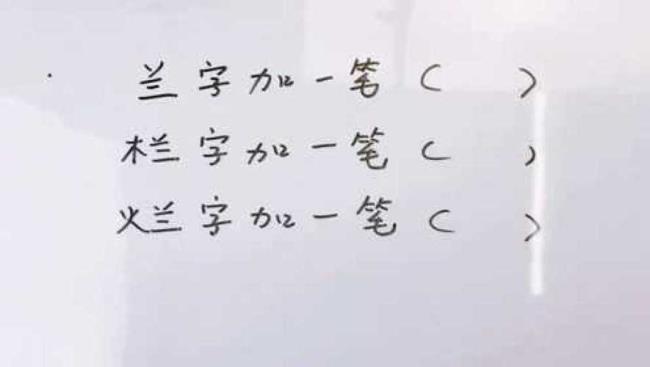 兰字加一笔（ ）
栏字加一笔（ ）
烂字加一笔（ ）